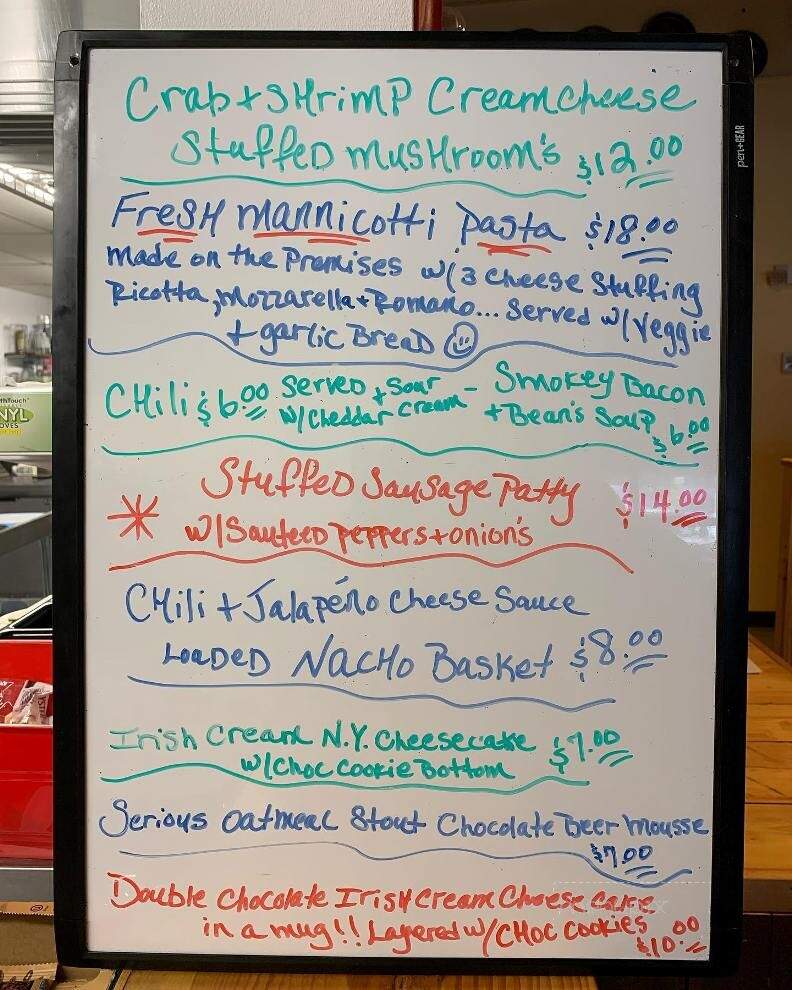 Crab + SHrimp Creamcheese
StuffeD musHroom's $12.00
FresH mannicotti pasta $18.00
made on the Premises w/3 cheese Stuffing
Ricotta, mozzarella + Romano... Served w/veggie
+ garlic BreaD
CHili $6.00 ServeD w/Cheddar + Sour Cream - Smokey Bacon
+ Bean's Soup $6.00
StuffeD Sausage Patty $14.00
w/SauteeD peppers + onion's
CHili + Jalapéno Cheese Sauce
LoaDeD NacHo Basket $8.00
Irish Cream N.Y. Cheesecake $7.00
w/Choc Cookie Bottom
Serious oatmeal Stout Chocolate Beer mousse
$7.00
Double Chocolate Irish Cream Cheese cake
in a mug!! Layered w/CHoc Cookies $10.00
pen+GEAR
VNYL